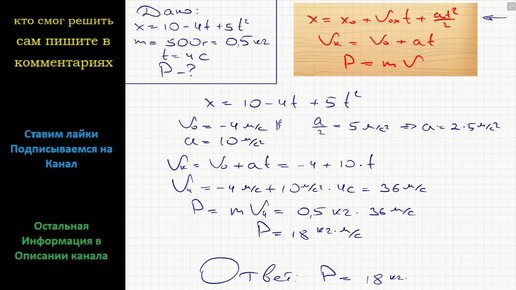 кто смог решить
сам пишите в
комментариях
Ставим лайки
Подписываемся на
Канал
Остальная
Информация в
Описании канала
Дано:
x = 10 - 4t + 5t²
m = 500г = 0,5 кг
t = 4 с
P - ?
x = x₀ + V₀ₓt + aₓt²/2
Vₖ = V₀ + at
P = m V
x = 10 - 4t + 5t²
V₀ = -4 м/с a/2 = 5 м/с² ⇒ a = 2·5 м/с²
a = 10 м/с²
Vₖ = V₀ + at = -4 + 10·t
V₄ = -4 м/с + 10 м/с² · 4с = 36 м/с
P = m V₄ = 0,5 кг · 36 м/с
P = 18 кг·м/с
Ответ: P = 18 кг.